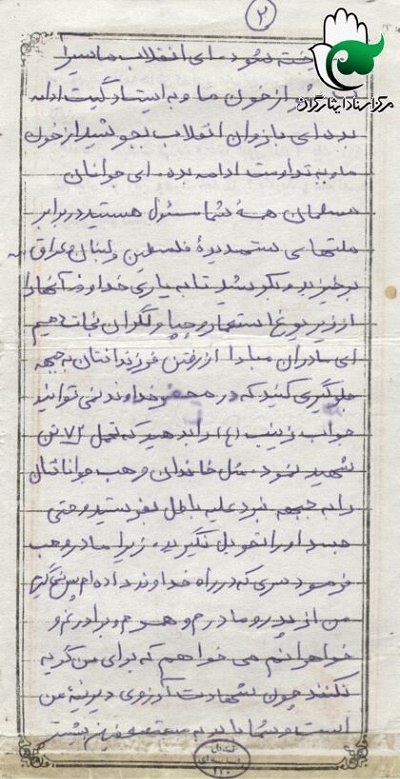 ۲
مرکز اسناد ایثارگران
ریخته شود. ای انقلاب ما سیرا
شو از خون ما و به ایستادگیت ادامه
بده ای بازوان انقلاب بجوشید از خون
ما و به تداومت ادامه بده. ای جوانان
مسلمان همه شما مسئول هستید در برابر
ملتهای ستمدیدهٔ فلسطین و لبنان و عراق
برخیزید و بکوشید تا به یاری خداوند آنها را
از زیر یوغ استعمار و چپاولگران نجات دهیم
ای مادران مبادا از رفتن فرزندانتان به جبهه
جلوگیری کنید که در محضر خداوند نمی توانید
جواب زینب (ع) را بدهید که تحمل ۷۲ تن
شهید نمود. مثل خاندان وهب جوانانتان
را به جبهه نبرد علیه باطل بفرستید و حتی
جسد او را تحویل نگیرید. زیرا مادر وهب
فرمود سری که در راه خداوند داده ام پس نمی گیرم
من از پدر و مادرم و همسرم و برادرم و
خواهرانم می خواهم که برای من گریه
نکنند چون شهادت آرزوی دیرینه من
است و شما باید به